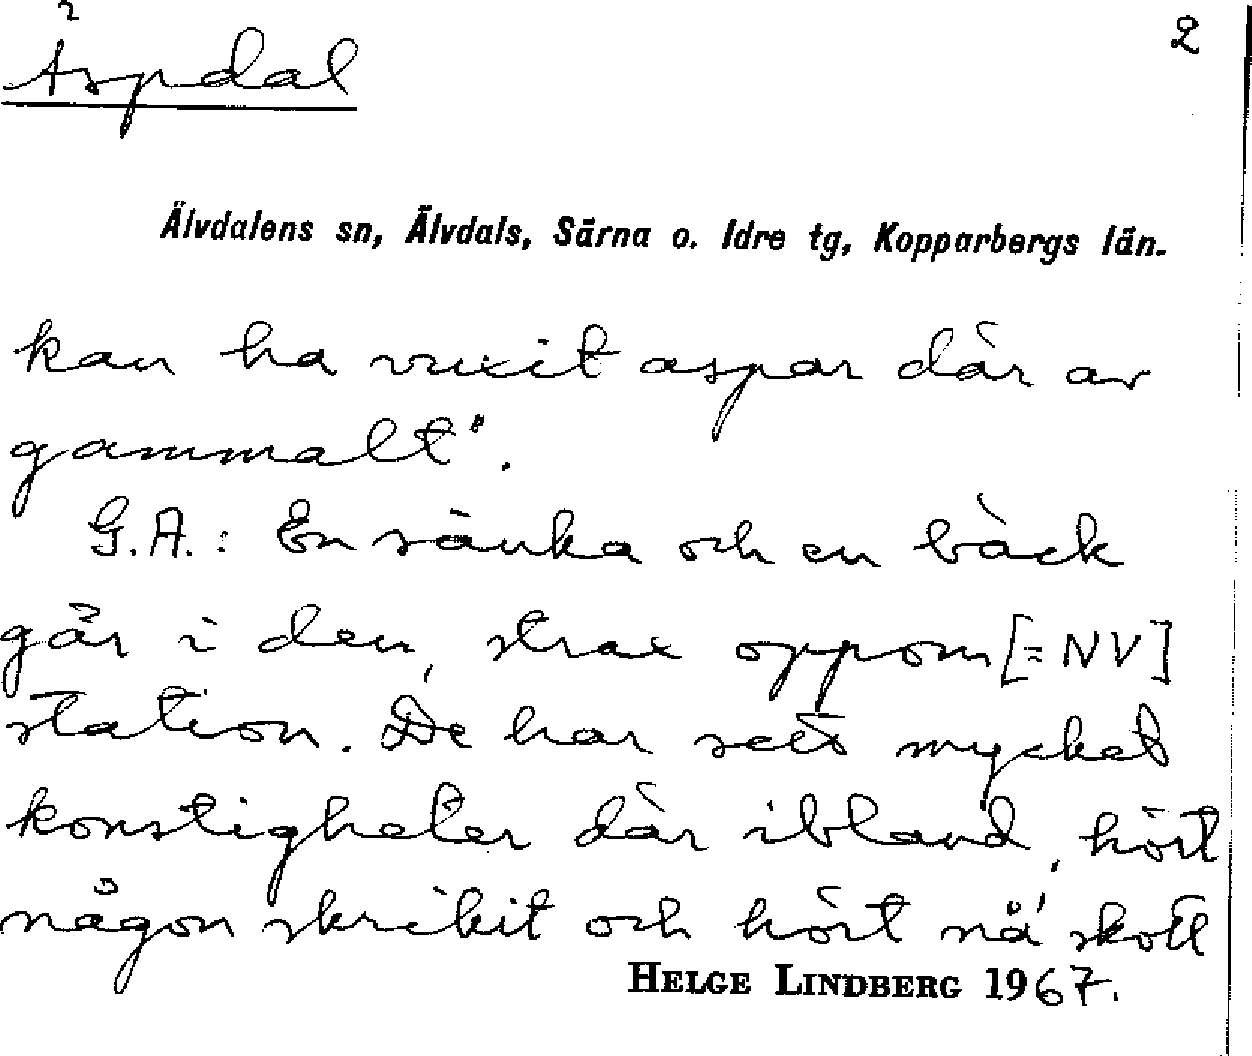 Äspdal 2
Älvdalens sn, Älvdals, Särna o. Idre tg, Kopparbergs län.
kan ha vuxit aspar där av
gammalt".
G.A.: En sänka och en bäck
går i den, strax oppom [= NV]
station. De har sett mycket
konstigheter där ibland, hört
någon skrikit och hört nå' skott
HELGE LINDBERG 1967.